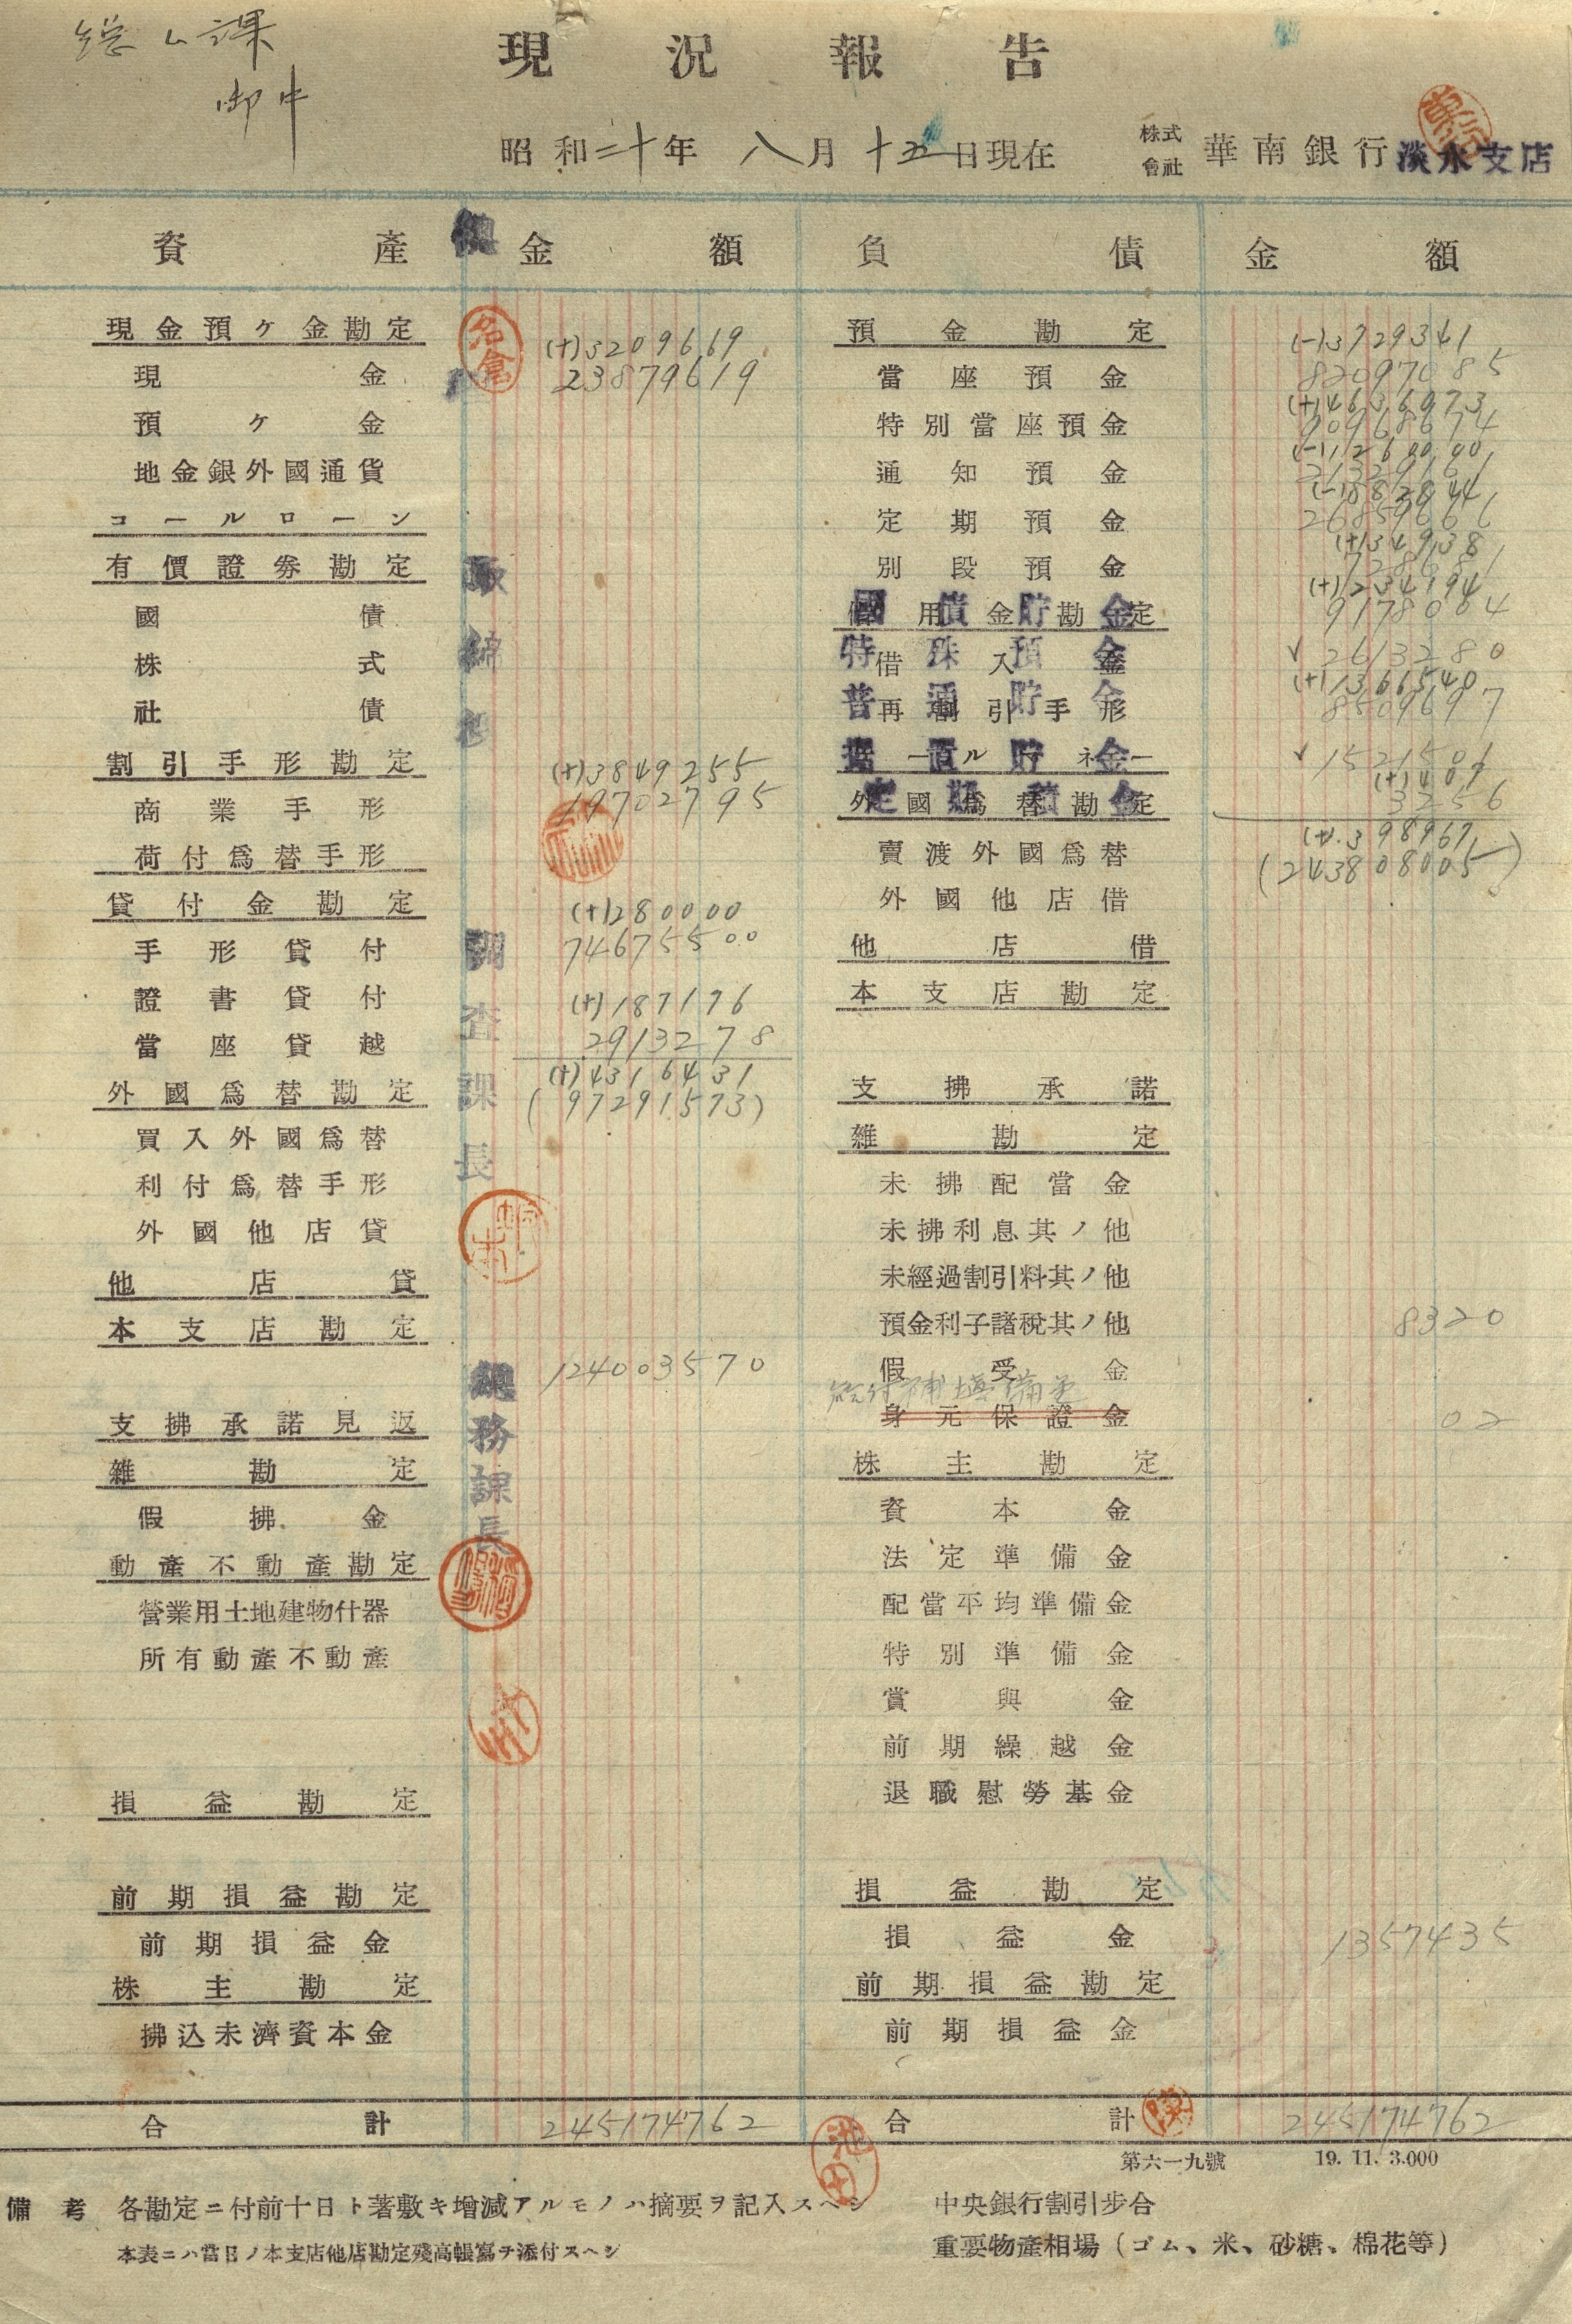 総ム課
御中
現況報告
昭和二十年 八月十五日現在
株式會社 華南銀行 淡水支店
資產 金額 負債 金額
現金預ケ金勘定
(+)3209669
現金 23879619
預ケ金
地金銀外國通貨
コールローン
有價證券勘定
國債
株式
社債
割引手形勘定
(+)3849255
商業手形 19702795
荷付爲替手形
貸付金勘定
(+)280000
手形貸付 74675500
證書貸付 (+)187196
當座貸越 2913278
(+)4316431
外國爲替勘定 (97291573)
買入外國爲替
利付爲替手形
外國他店貸
他店貸
本支店勘定
124003570
支拂承諾見返
雜勘定
假拂金
動產不動產勘定
營業用土地建物什器
所有動產不動產
損益勘定
前期損益勘定
前期損益金
株主勘定
拂込未濟資本金
合計 245174762
名倉
調査課長
總務課長
預金勘定
(-)3729341
當座預金 82097085
(+)4636973
特別當座預金 90968674
(-)1260000
通知預金
定期預金 26859666
(+)34938
別段預金 728681
(+)1234194
借用金勘定
國債貯金 9178064
借入金
特殊預金 2613280
(+)1366540
再割引手形
普通貯金 8509697
コールマネー
據置貯金 1521501
外國爲替勘定
定期積金 3256
(+)398967
賣渡外國爲替 (243808005)
外國他店借
他店借
本支店勘定
支拂承諾
雜勘定
未拂配當金
未拂利息其ノ他
未經過割引料其ノ他
預金利子諸稅其ノ他 8320
假受金
給付補塡備金
身元保證金 02
株主勘定
資本金
法定準備金
配當平均準備金
特別準備金
賞與金
前期繰越金
退職慰勞基金
損益勘定
損益金 1357435
前期損益勘定
前期損益金
合計 245174762
池田
第六一九號 19. 11. 3.000
備考 各勘定ニ付前十日ト著敷キ增減アルモノハ摘要ヲ記入スヘシ
本表ニハ當日ノ本支店他店勘定殘高帳寫ヲ添付スヘシ
中央銀行割引步合
重要物產相場(ゴム、米、砂糖、棉花等)